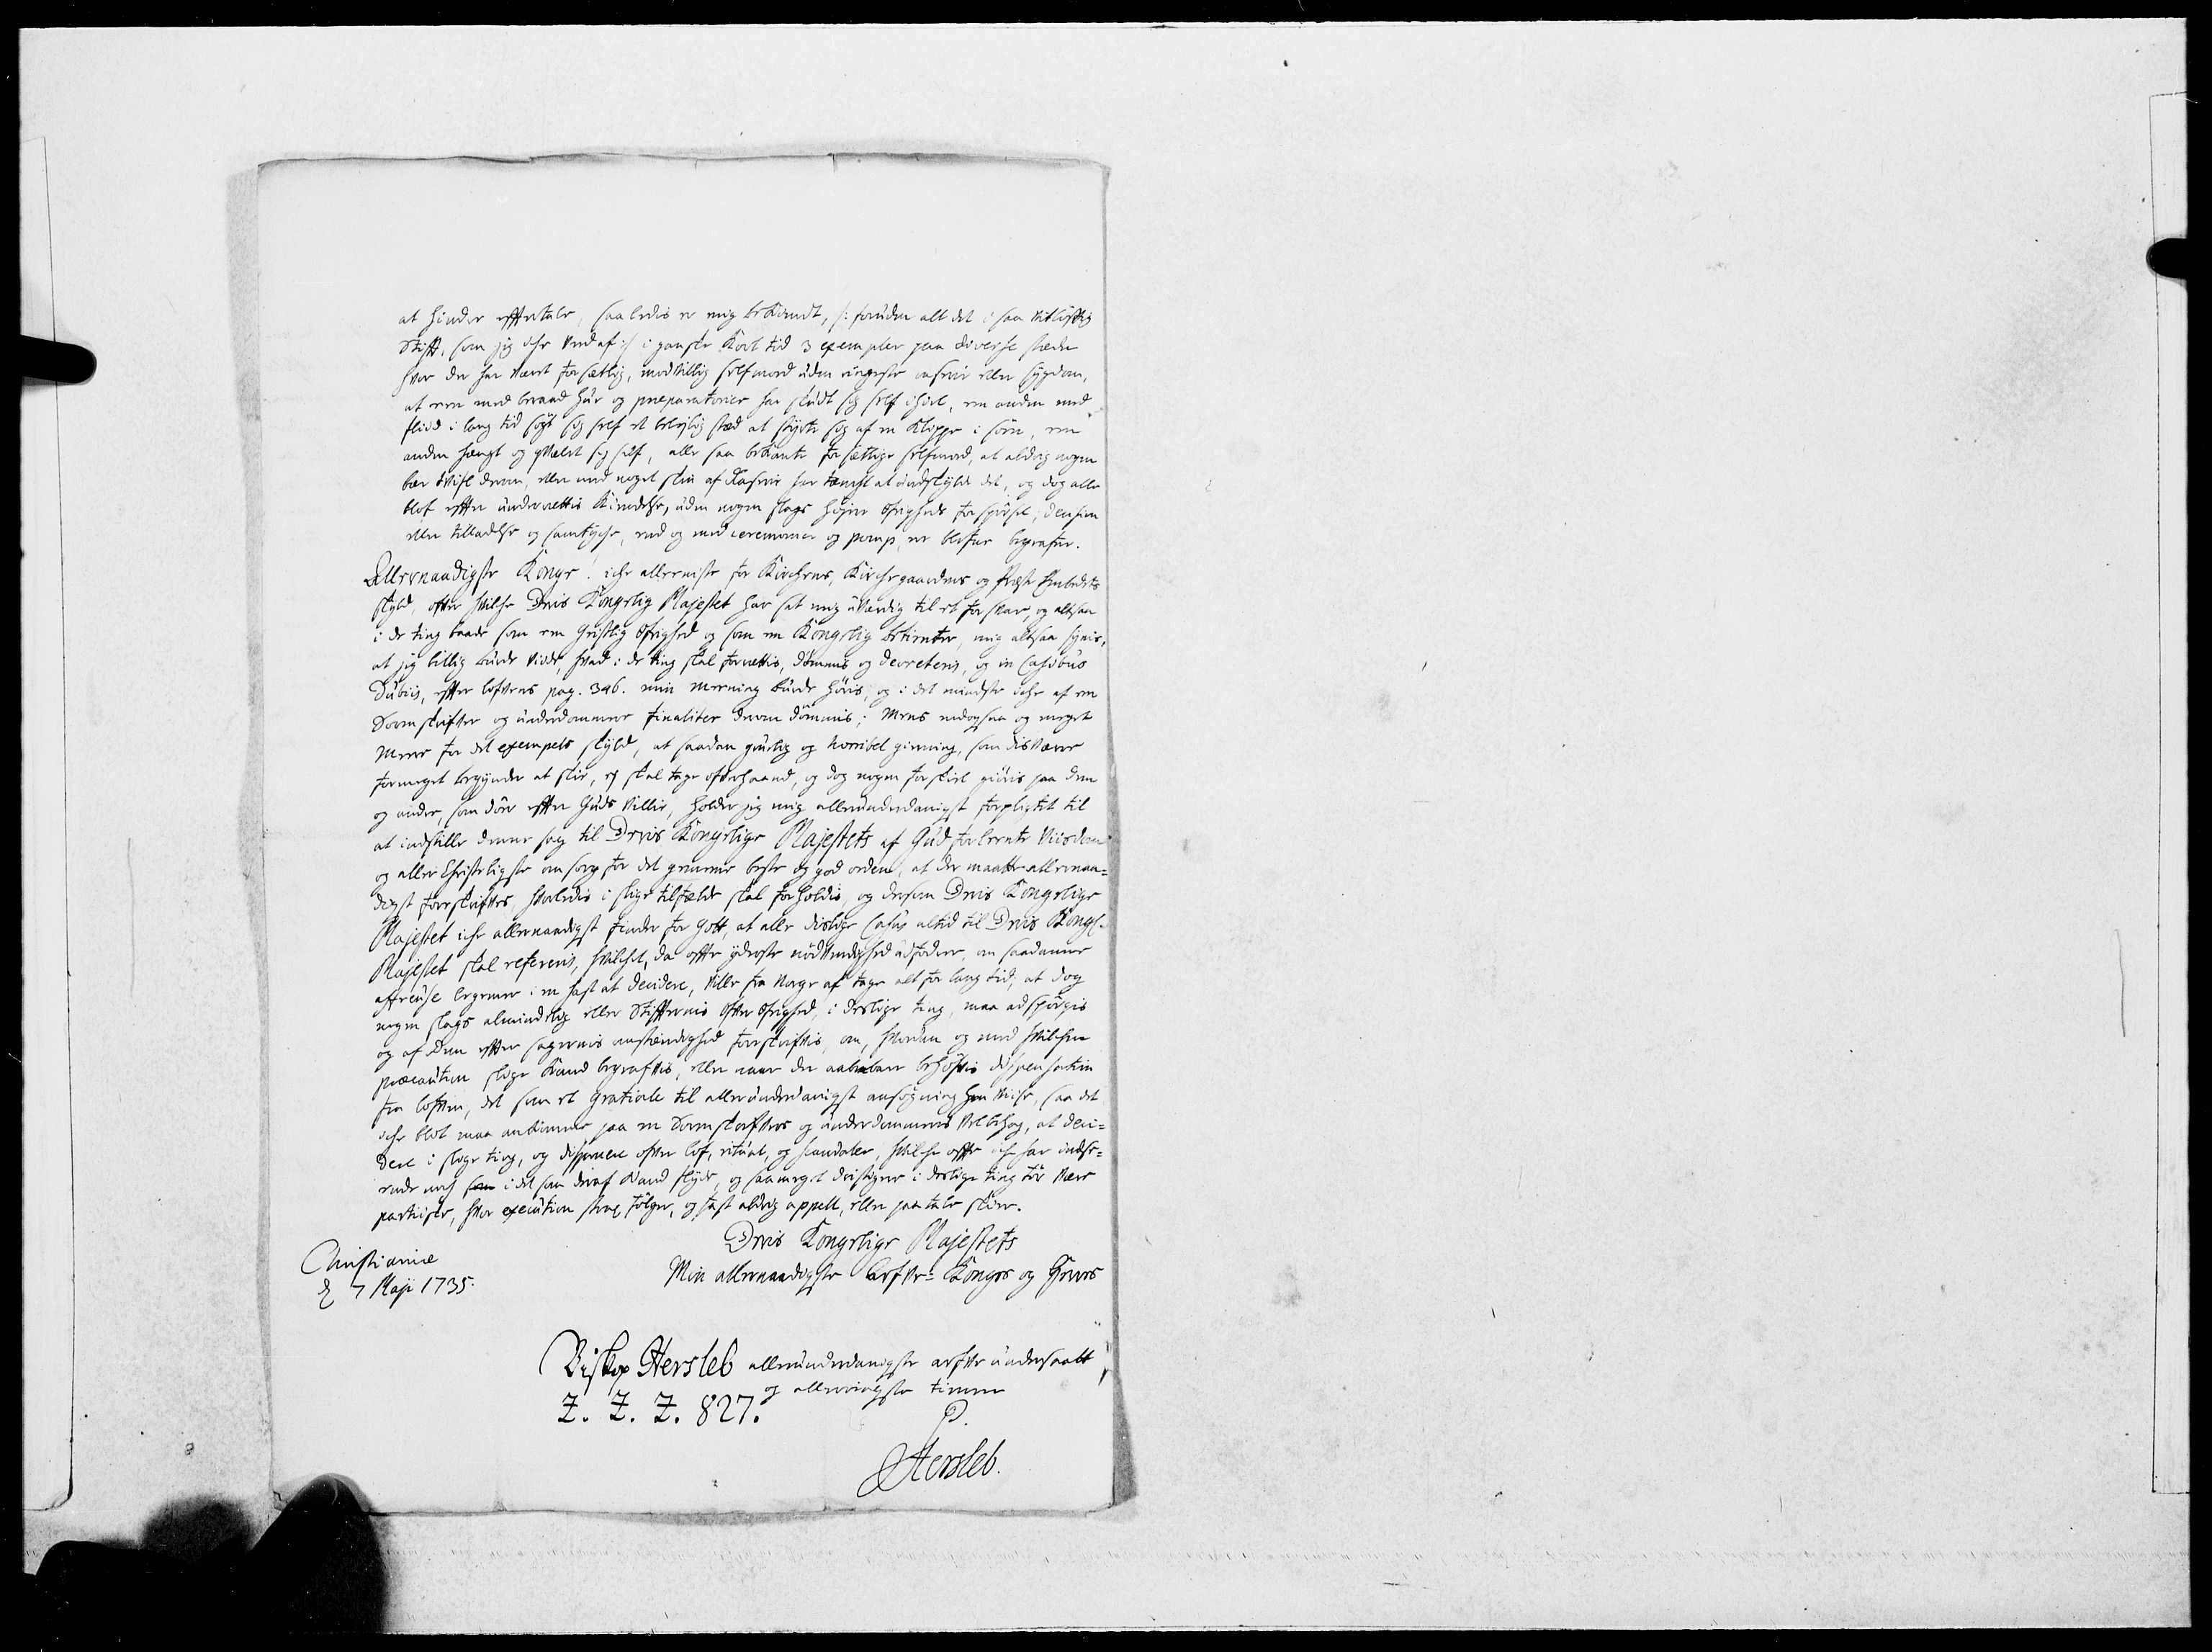 at hinder efftertale, saaledis er mig bekandt, /: foruden alt det i saa vitløftig
Stift, som jeg icke veed af :/ i ganske kort tid 3 exempler paa diverse stæder
hvor der har været forsætlig, modvillig selfmord uden ringeste raserie eller sygdom,
at een med beraad hu og præparatorier har skudt sig self ihiel, een anden med
fliid i lang tid søgt sig self et beleylig stæd at styrte sig af en Klippe i søen, een
anden hengt og qvalet sig self, alle saa bekante forsætlige selfmord, at aldrig nogen
bær tvifl derom, eller med noget skin af Raserie har tænckt at undskylde det, og dog alle
blot effter underrettis Kiendelse, uden nogen slags høyere øfrigheds forspørsel, decision
eller tilladelse og samtycke, med og med ceremonier og pomp, er blefne begrafne.
Allernaadigste Konge! icke alleeniste for Kirckens, Kirckegaardens og Præste Embedets
skyld, ofver hvilcke Deris Kongelig Majestet har sat mig uværdig til et forsvar, og altsaa
i de ting baade som een Geistlig øfrighed og som en Kongelig betienter, mig altsaa synis,
at jeg billig burde vide, hvad i de ting skal forrettis, dømmis og decreteris, og in Casibus
Dubiis, effter lofvens pag. 396. min meening burde høris, og i det mindste icke af een
Sorenskrifver og underdommer finaliter derom dømmis; Mens endogsaa og meget
meere for det exempels skyld, at saadan grulig og horribel gierning, som disværre
formeget begynder at skee, ej skal tage ofverhaand, og dog nogen forskiel giøris paa dem
og andre, som døer effter Guds villie, holder jeg mig allerunderdanigst forpligtet til
at indstille denne sag til Deris Kongelige Majestets af Gud forleente Viisdom
og aller Christeligste omsorg for det gemeene beste og god orden, at der maatte allernaa=
digst forreskrifves, hvorledis i slige tilfælde skal forholdis, og dersom Deris Kongelige
Majestet icke allernaadigst finder for Gott, at alle deslige Casus altid til Deris Kongl.
Majestet skal refereris, hvilcket, da effter yderste nødvendighed udfodrer, om saadanne
affreuse legemer i en hast at decidere, ville fra Norge af tage alt for lang tid; at dog
nogen slags almindelig eller Stifternis ofver øfrighed, i deslige ting, maa adspørgis
og af dem effter sagernis omstændighed forreskrifvis, om, hvordan og med hvilcken
præcaution slige kand begrafvis, eller naar der aabenbare behøfvis dispensation
fra lofven, det som et Gratiale til allerunderdanigst ansøgning henviise, saa det
icke blot maa ankomme paa en Sorenskrifvers og underdommers velbehag, at deci=
dere i slige ting, og dispensere ofver lof, ritual, og scandaler, hvilcke offte icke har indse=
ende med i det som deraf kand flyde, og saameget dristigere i deslige ting tør være
partiiske, hvor execution strax følger, og fast aldrig appell, eller paatale skeer.
Deris Kongelige Majestets
Min allernaadigste Arfve= Konges og Herres
Christianiæ
d 7 Maji 1735.
Biskop Hersleb allerunderdanigste arfve undersaatt
og allerringeste tienner
Z. Z. Z. 827.
P.
Hersleb.